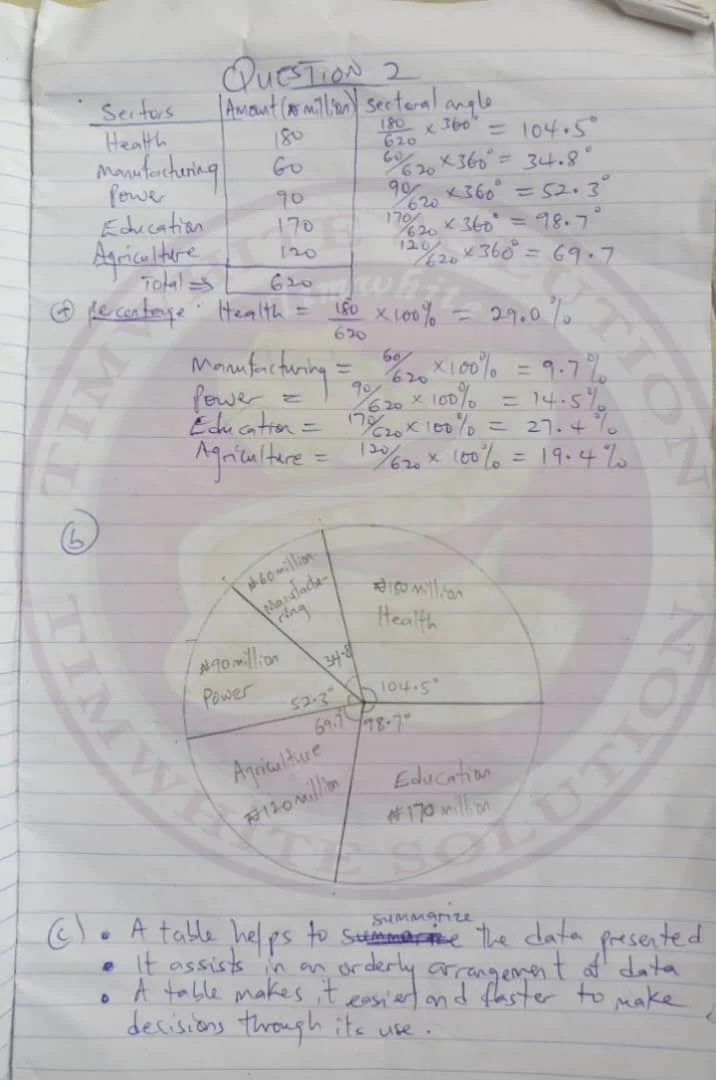 QUESTION 2
Sectors Amount (₦ million) Sectoral angle
Health 180 180/620 × 360° = 104.5°
Manufacturing 60 60/620 × 360° = 34.8°
Power 90 90/620 × 360° = 52.3°
Education 170 170/620 × 360° = 98.7°
Agriculture 120 120/620 × 360° = 69.7
Total ⇒ 620
percentage. Health = 180/620 × 100% = 29.0%
Manufacturing = 60/620 × 100% = 9.7%
Power = 90/620 × 100% = 14.5%
Education = 170/620 × 100% = 27.4%
Agriculture = 120/620 × 100% = 19.4%
(b)
₦60 million
Manufacturing
34.8
₦180 million
Health
104.5°
₦90 million
Power
52.3°
69.7
98.7°
Agriculture
₦120 million
Education
₦170 million
(c) • A table helps to summarize the data presented
• It assists in an orderly arrangement of data
• A table makes it easier and faster to make
decisions through its use.
TIMWHITE SOLUTION
Timwhite
TIMWHITE SOLUTION